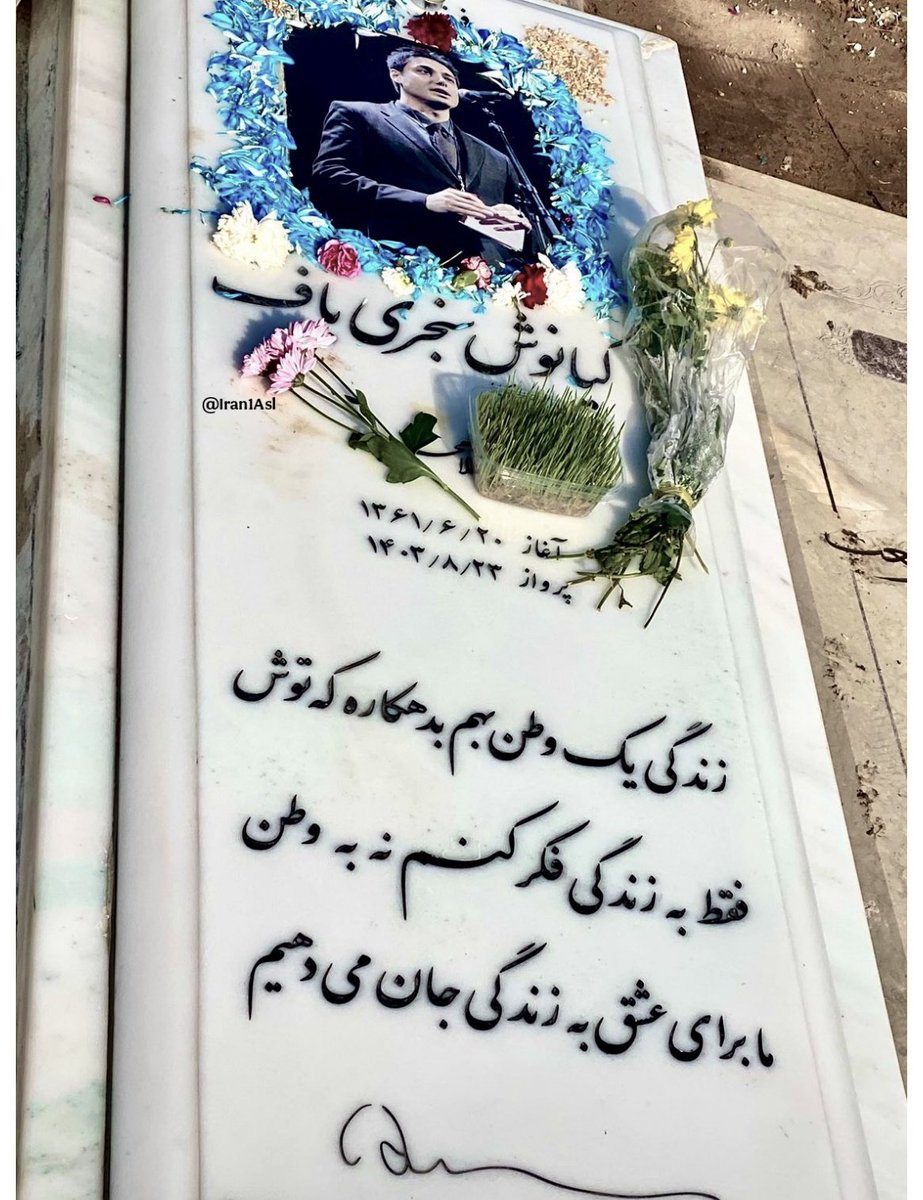 کیانوش سنجری باف
@Iran1Asl
آغاز ۱۳۶۱/۶/۲۰
پرواز ۱۴۰۳/۸/۲۳
زندگی یک وطن بهم بدهکاره که توش
فقط به زندگی فکر کنم نه به وطن
ما برای عشق به زندگی جان می دهیم